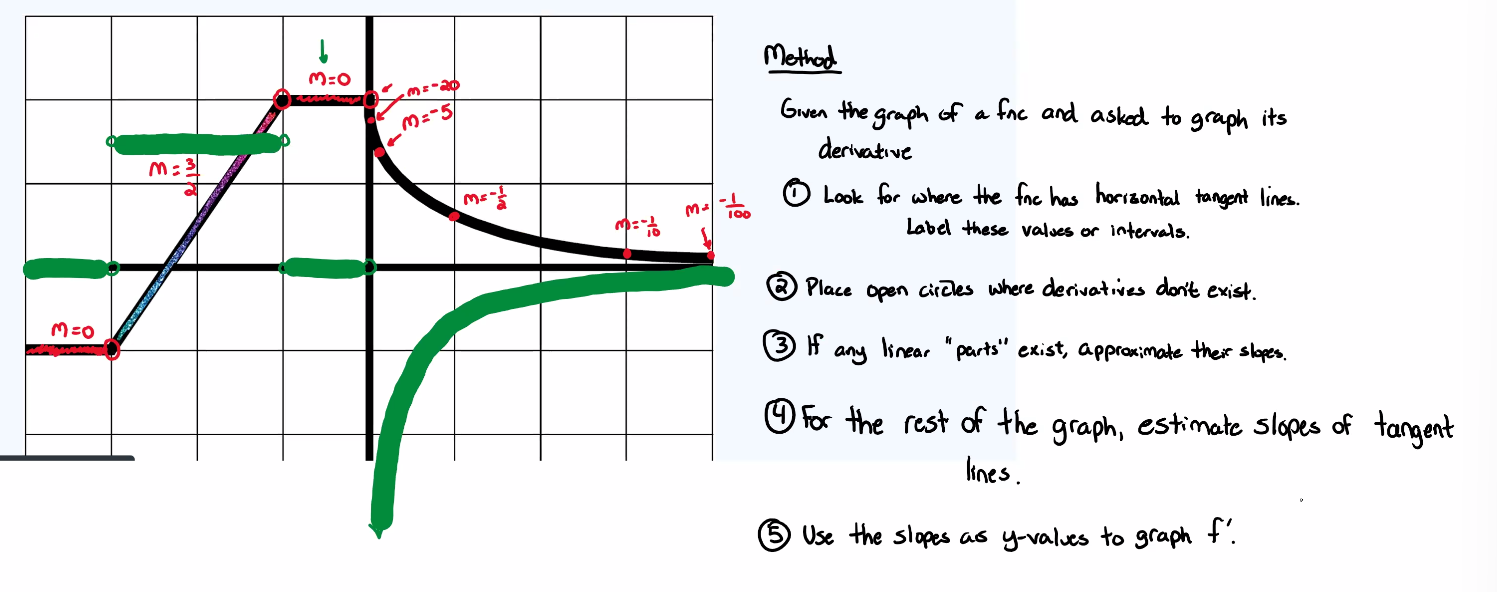 m=0
m=-20
m=-5
m=3/2
m=-1/2
m=-1/10
m=-1/100
m=0
Method
Given the graph of a fnc and asked to graph its
derivative
① Look for where the fnc has horizontal tangent lines.
Label these values or intervals.
② Place open circles where derivatives don't exist.
③ If any linear "parts" exist, approximate their slopes.
④ For the rest of the graph, estimate slopes of tangent
lines.
⑤ Use the slopes as y-values to graph f'.